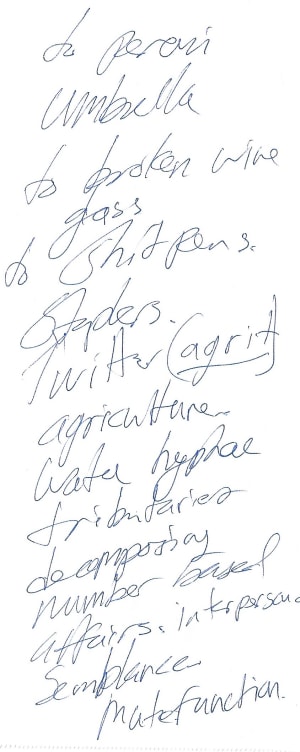 to peroni
umbrella
to broken wine
glass
to Shitpens.
Staplers.
Twitter (agrit)
agriculture.
water hyphae
tributaries
decomposing
number based
affairs. interpersona
Semblance.